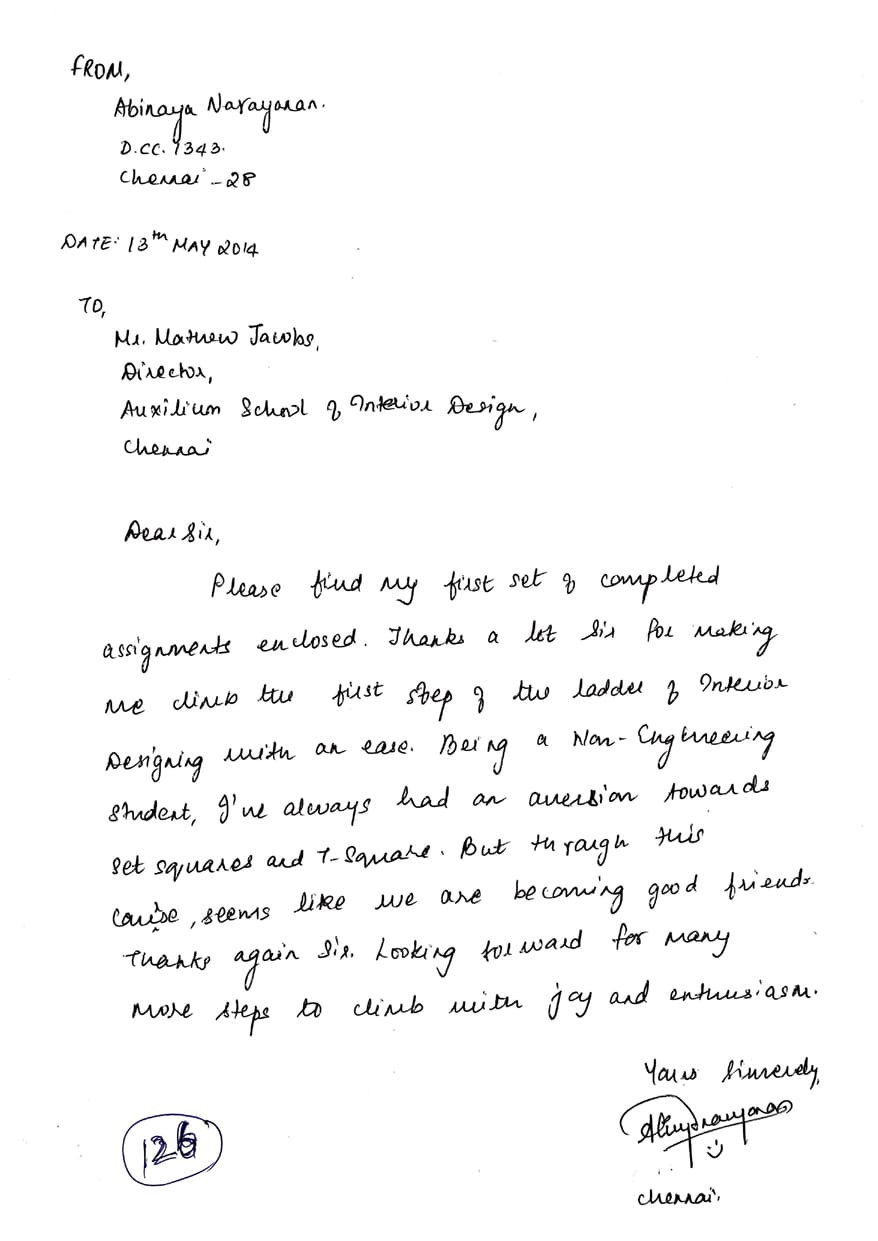 FROM,
Abinaya Narayanan.
D.CC. 1343.
Chennai - 28
DATE: 13th MAY 2014
TO,
Mr. Mathew Jacobs,
Director,
Auxilium School of Interior Design,
Chennai
Dear Sir,
Please find my first set of completed
assignments enclosed. Thanks a lot Sir for making
me climb the first step of the ladder of Interior
Designing with an ease. Being a Non-Engineering
student, I've always had an aversion towards
set squares and T-Square. But through this
course, seems like we are becoming good friends.
Thanks again Sir. Looking forward for many
more steps to climb with joy and enthusiasm.
Yours Sincerely,
:)
Chennai.
126